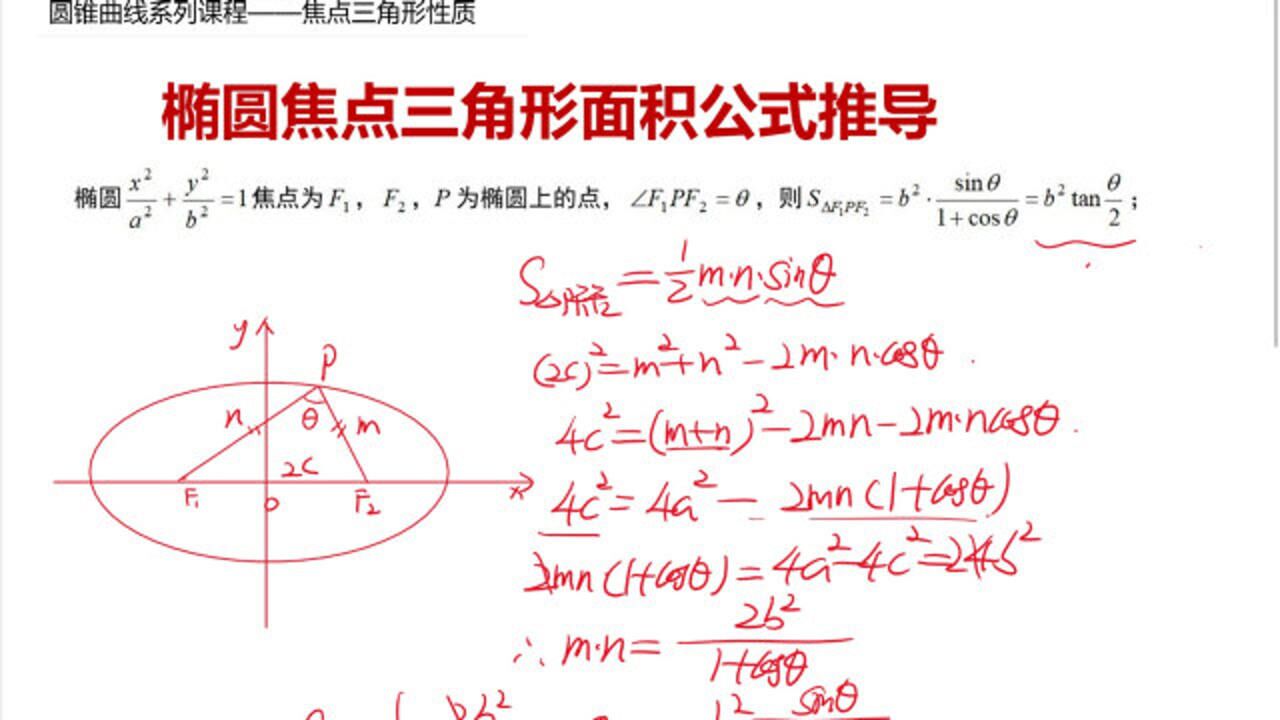 圆锥曲线系列课程——焦点三角形性质
椭圆焦点三角形面积公式推导
椭圆 x²/a² + y²/b² = 1 焦点为 F₁， F₂，P 为椭圆上的点，∠F₁PF₂ = θ，则 S△F₁PF₂ = b² · sinθ/(1+cosθ) = b² tan θ/2；
S△PF₁F₂ = 1/2 m·n·sinθ
(2c)² = m² + n² - 2m·n·cosθ.
4c² = (m+n)² - 2mn - 2m·ncosθ.
4c² = 4a² - 2mn(1+cosθ)
2mn(1+cosθ) = 4a² - 4c² = 4b²
∴ m·n = 2b²/(1+cosθ)
y
P
n
θ
m
2c
F₁
o
F₂
x
b²
sinθ